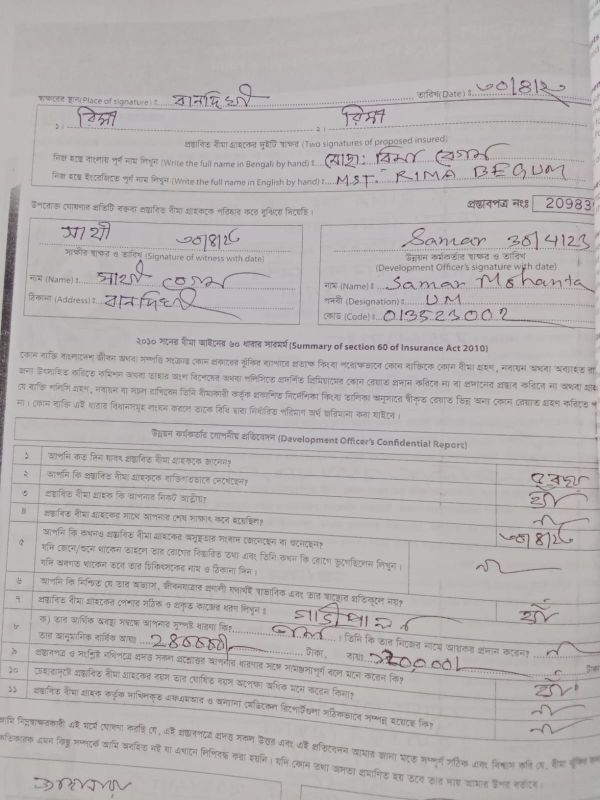 স্বাক্ষরের স্থান(Place of signature) ঃ বানদিঘী তারিখ(Date) ঃ
১। রিমা ২। রিমা
প্রস্তাবিত বীমা গ্রাহকের দুইটি স্বাক্ষর (Two signatures of proposed insured)
নিজ হস্তে বাংলায় পূর্ণ নাম লিখুন (Write the full name in Bengali by hand) ঃ মোছা: রিমা বেগম
নিজ হস্তে ইংরেজিতে পূর্ণ নাম লিখুন (Write the full name in English by hand) ঃ MST. RIMA BEGUM
উপরোক্ত ঘোষণার প্রতিটি বক্তব্য প্রস্তাবিত বীমা গ্রাহককে পরিষ্কার করে বুঝিয়ে দিয়েছি।
প্রস্তাবপত্র নংঃ 20983
সাথী
সাক্ষীর স্বাক্ষর ও তারিখ (Signature of witness with date)
নাম (Name) ঃ সাথী বেগম
ঠিকানা (Address) ঃ বানদিঘী
Samar 30/4/23
উন্নয়ন কর্মকর্তার স্বাক্ষর ও তারিখ
(Development Officer's signature with date)
নাম (Name) ঃ Samar Mohanta
পদবী (Designation) ঃ UM
কোড (Code) ঃ 013523002
২০১০ সনের বীমা আইনের ৬০ ধারার সারমর্ম (Summary of section 60 of Insurance Act 2010)
কোন ব্যক্তি বাংলাদেশে জীবন অথবা সম্পত্তি সংক্রান্ত কোন প্রকারের ঝুঁকির ব্যাপারে প্রত্যক্ষ কিংবা পরোক্ষভাবে কোন ব্যক্তিকে কোন বীমা গ্রহণ, নবায়ন অথবা অব্যাহত
জন্য উৎসাহিত করিতে কমিশন অথবা তাহার অংশ বিশেষের অথবা পলিসিতে প্রদর্শিত প্রিমিয়ামের কোন রেয়াত প্রদান করিবে না বা প্রদানের প্রস্তাব করিবে না অথবা
যে ব্যক্তি পলিসি গ্রহণ, নবায়ন বা সচল রাখিবেন তিনি বীমাকারী কর্তৃক প্রকাশিত নির্দেশিকা কিংবা তালিকা অনুসারে স্বীকৃত রেয়াত ভিন্ন অন্য কোন রেয়াত গ্রহণ করিতে
না। কোন ব্যক্তি এই ধারার বিধানসমূহ লংঘন করলে তাকে বিধি দ্বারা নির্ধারিত পরিমাণ অর্থ জরিমানা করা যাইবে।
উন্নয়ন কর্মকর্তার গোপনীয় প্রতিবেদন (Development Officer's Confidential Report)
১ আপনি কত দিন যাবৎ প্রস্তাবিত বীমা গ্রাহককে জানেন?
২ আপনি কি প্রস্তাবিত বীমা গ্রাহককে ব্যক্তিগতভাবে দেখেছেন? হ্যাঁ
৩ প্রস্তাবিত বীমা গ্রাহক কি আপনার নিকট আত্মীয়? না
৪ প্রস্তাবিত বীমা গ্রাহকের সাথে আপনার শেষ সাক্ষাৎ কবে হয়েছিল?
৫ আপনি কি কখনও প্রস্তাবিত বীমা গ্রাহকের অসুস্থতার সংবাদ জেনেছেন বা শুনেছেন?
যদি জেনে/শুনে থাকেন তাহলে তার রোগের বিস্তারিত তথ্য এবং তিনি কখন কি রোগে ভুগেছিলেন লিখুন। না
যদি অবগত থাকেন তবে তার চিকিৎসকের নাম ও ঠিকানা দিন।
৬ আপনি কি নিশ্চিত যে তার অভ্যাস, জীবনযাত্রার প্রণালী যথার্থই স্বাভাবিক এবং তার স্বাস্থ্যের প্রতিকূলে নয়? হ্যাঁ
৭ প্রস্তাবিত বীমা গ্রাহকের পেশার সঠিক ও প্রকৃত কাজের ধরণ লিখুন ঃ গাভীপালন
৮ ক) তার আর্থিক অবস্থা সম্বন্ধে আপনার সুস্পষ্ট ধারণা কি? ভাল । তিনি কি তার নিজের নামে আয়কর প্রদান করেন? না
তার আনুমানিক বার্ষিক আয়ঃ 280000/ টাকা, ব্যয়ঃ টাকা
৯ প্রস্তাবপত্র ও সংশ্লিষ্ট নথিপত্রে প্রদত্ত সকল প্রশ্নোত্তর আপনার ধারণার সঙ্গে সামঞ্জস্যপূর্ণ বলে মনে করেন কি? হ্যাঁ
১০ চেহারাদৃষ্টে প্রস্তাবিত বীমা গ্রাহকের বয়স তার ঘোষিত বয়স অপেক্ষা অধিক মনে করেন কিনা? না
১১ প্রস্তাবিত বীমা গ্রাহক কর্তৃক দাখিলকৃত এফএমআর ও অন্যান্য মেডিকেল রিপোর্টগুলো সঠিকভাবে সম্পন্ন হয়েছে কি? না
আমি নিম্নস্বাক্ষরকারী এই মর্মে ঘোষণা করছি যে, এই প্রস্তাবপত্রে প্রদত্ত সকল উত্তর এবং এই প্রতিবেদন আমার জানা মতে সম্পূর্ণ সঠিক এবং বিশ্বাস করি যে, বীমা ঝুঁকির
এমন কিছু সম্পর্কে আমি অবহিত নই যা এখানে লিপিবদ্ধ করা হয়নি। যদি কোন তথ্য অসত্য প্রমাণিত হয় তবে তার দায় আমার উপর বর্তাবে।